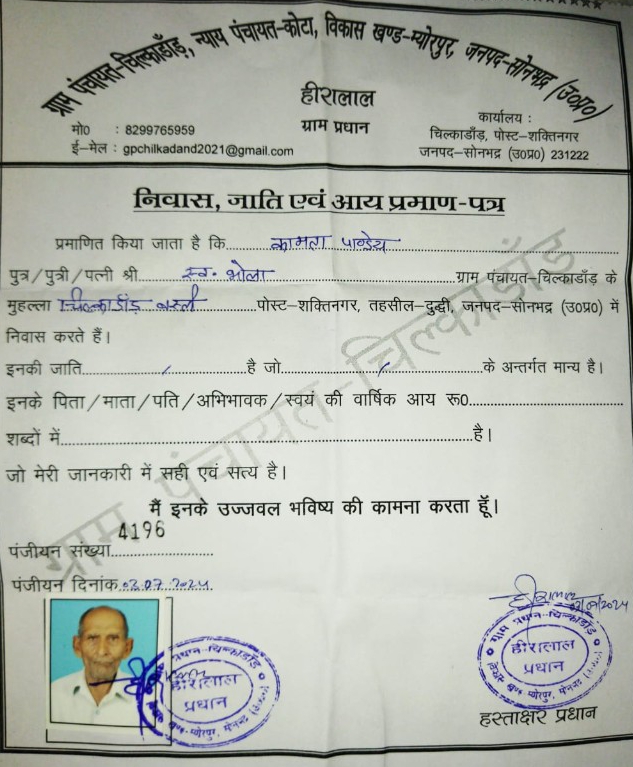 ग्राम पंचायत-चिल्काडाँड़, न्याय पंचायत-कोटा, विकास खण्ड-म्योरपुर, जनपद-सोनभद्र (उ०प्र०)
हीरालाल
ग्राम प्रधान
मो० : 8299765959
ई-मेल : gpchilkadand2021@gmail.com
कार्यालय :
चिल्काडाँड़, पोस्ट-शक्तिनगर
जनपद-सोनभद्र (उ०प्र०) 231222
निवास, जाति एवं आय प्रमाण-पत्र
प्रमाणित किया जाता है कि कामता पाण्डेय
पुत्र/पुत्री/पत्नी श्री स्व. भोला ग्राम पंचायत-चिल्काडाँड़ के
मुहल्ला चिल्काडाँड़ बस्ती पोस्ट-शक्तिनगर, तहसील-दुद्धी, जनपद-सोनभद्र (उ०प्र०) में
निवास करते हैं।
इनकी जाति है जो के अन्तर्गत मान्य है।
इनके पिता/माता/पति/अभिभावक/स्वयं की वार्षिक आय रू0
शब्दों में है।
जो मेरी जानकारी में सही एवं सत्य है।
मैं इनके उज्जवल भविष्य की कामना करता हूँ।
पंजीयन संख्या 4196
पंजीयन दिनांक 03.07.2024
ग्राम पंचायत-चिल्काडाँड़
हीरालाल
प्रधान
ग्राम प्रधान-चिल्काडाँड़
हीरालाल
प्रधान
हस्ताक्षर प्रधान